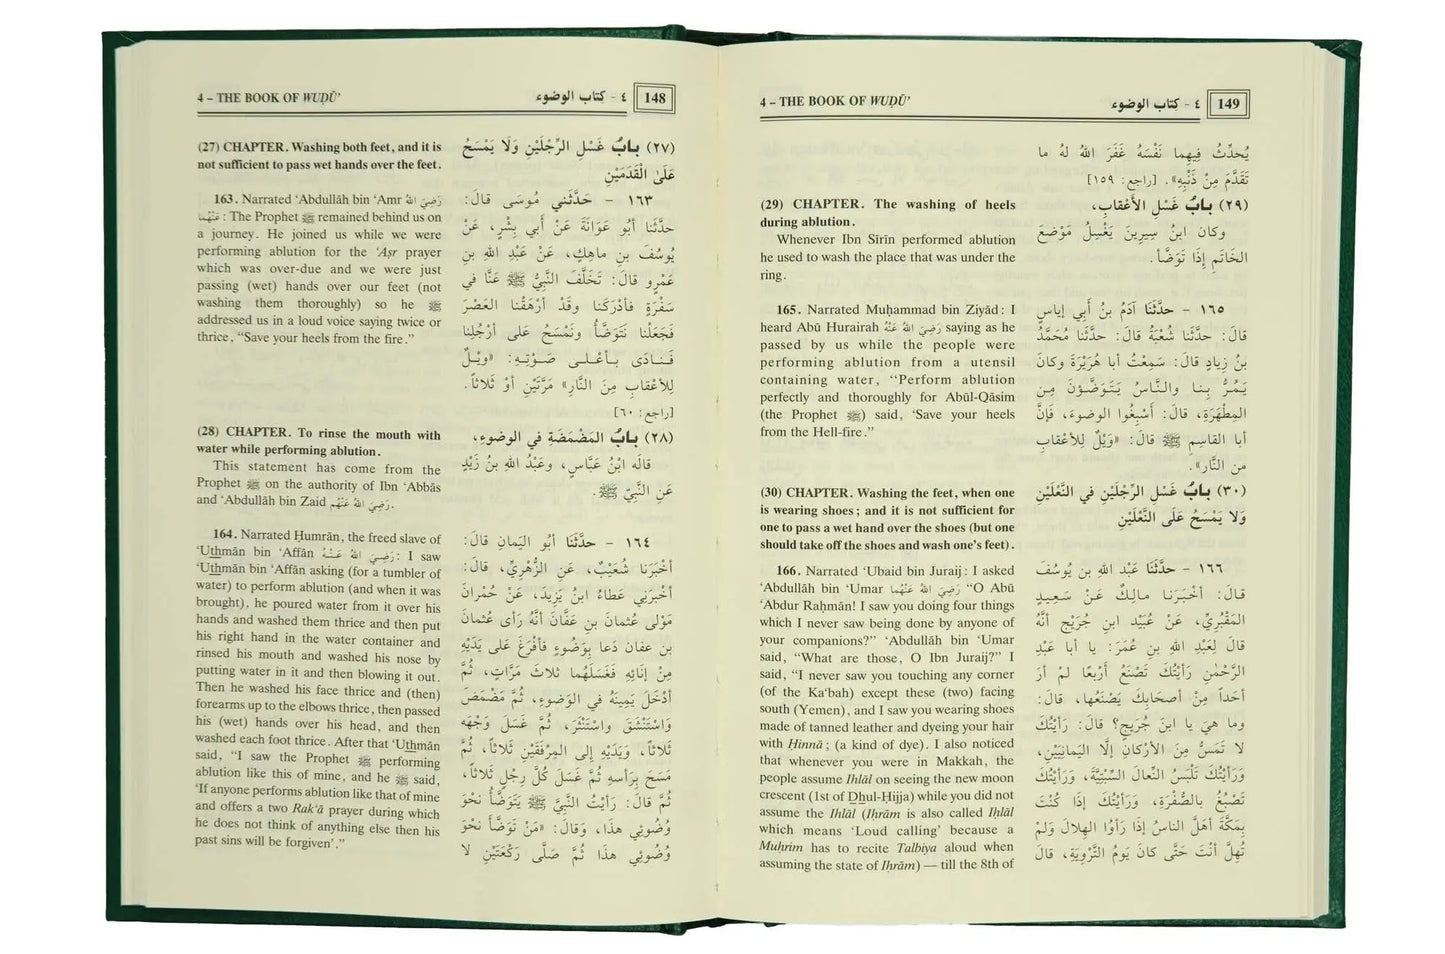 4 – THE BOOK OF WUḌŪ’
٤ - كتاب الوضوء
148
(27) CHAPTER. Washing both feet, and it is
not sufficient to pass wet hands over the feet.
163. Narrated ‘Abdullāh bin ‘Amr رَضِيَ اللهُ
عَنْهُمَا : The Prophet ﷺ remained behind us on
a journey. He joined us while we were
performing ablution for the ‘Aṣr prayer
which was over-due and we were just
passing (wet) hands over our feet (not
washing them thoroughly) so he ﷺ
addressed us in a loud voice saying twice or
thrice, “Save your heels from the fire.”
(28) CHAPTER. To rinse the mouth with
water while performing ablution.
This statement has come from the
Prophet ﷺ on the authority of Ibn ‘Abbās
and ‘Abdullāh bin Zaid رَضِيَ اللهُ عَنْهُم.
164. Narrated Ḥumrān, the freed slave of
‘Uthmān bin ‘Affān رَضِيَ اللهُ عَنْهُ: I saw
‘Uthmān bin ‘Affān asking (for a tumbler of
water) to perform ablution (and when it was
brought), he poured water from it over his
hands and washed them thrice and then put
his right hand in the water container and
rinsed his mouth and washed his nose by
putting water in it and then blowing it out.
Then he washed his face thrice and (then)
forearms up to the elbows thrice, then passed
his (wet) hands over his head, and then
washed each foot thrice. After that ‘Uthmān
said, “I saw the Prophet ﷺ performing
ablution like this of mine, and he ﷺ said,
‘If anyone performs ablution like that of mine
and offers a two Rak‘ā prayer during which
he does not think of anything else then his
past sins will be forgiven’.”
(٢٧) بابُ غَسْلِ الرِّجْلَيْنِ وَلَا يَمْسَحُ
عَلَىٰ الْقَدَمَيْنِ
١٦٣ - حَدَّثَني مُوسَى قَالَ:
حَدَّثَنا أبُو عَوَانَةَ عَنْ أبي بِشْرٍ، عَنْ
يُوسُفَ بنِ ماهِكٍ، عَنْ عَبْدِ اللهِ بنِ
عَمْرٍو قَالَ: تَخَلَّفَ النَّبِيُّ ﷺ عَنَّا في
سَفْرَةٍ فأدْرَكَنا وقَدْ أرْهَقْنا العَصْرَ
فَجَعَلْنا نَتَوَضَّأُ ونَمْسَحُ على أرْجُلِنا
فَنادَى بأعْلى صَوْتِهِ: «ويْلٌ
للأعْقابِ مِنَ النَّارِ» مَرَّتَيْنِ أوْ ثَلاثاً.
[راجع: ٦٠]
(٢٨) بابُ المَضْمَضَةِ في الوُضوءِ،
قالَه ابْنُ عَبَّاسٍ، وعَبْدُ اللهِ بنُ زَيْدٍ
عَنِ النَّبِيِّ ﷺ.
١٦٤ - حدَّثَنا أبُو اليَمانِ قَالَ:
أخْبَرَنا شُعَيْبٌ، عَنِ الزُّهْرِيِّ، قَالَ:
أخْبَرَنِي عَطاءُ ابنُ يَزِيدَ، عَنْ حُمْرانَ
مَوْلى عُثمانَ بنِ عَفَّانَ أنَّهُ رَأى عُثمانَ
بنَ عفان دَعا بِوَضُوءٍ فأفْرَغَ على يَدَيْهِ
مِنْ إنَائِهِ فَغَسَلَهُما ثلاثَ مَرَّاتٍ، ثُمَّ
أدْخَلَ يَمِينَهُ في الوَضوءِ، ثُمَّ مَضْمَضَ
وَاسْتَنْشَقَ واسْتَنْثَرَ، ثُمَّ غَسَلَ وَجْهَه
ثَلاثاً، وَيَدَيْهِ إلى المِرْفَقَيْنِ ثَلاثاً، ثُمَّ
مَسَحَ بِرَأسِهِ ثُمَّ غَسَلَ كُلَّ رِجْلٍ ثَلاثاً،
ثُمَّ قالَ: رَأيْتُ النَّبِيَّ ﷺ يَتَوَضَّأُ نَحْوَ
وُضُوئي هذَا، وَقَالَ: «مَنْ تَوَضَّأَ نَحْوَ
وُضُوئِي هذَا ثُمَّ صَلَّى رَكْعَتَيْنِ لا
4 – THE BOOK OF WUḌŪ’
٤ - كتاب الوضوء
149
(29) CHAPTER. The washing of heels
during ablution.
Whenever Ibn Sīrīn performed ablution
he used to wash the place that was under the
ring.
165. Narrated Muḥammad bin Ziyād: I
heard Abū Hurairah رَضِيَ اللهُ عَنْهُ saying as he
passed by us while the people were
performing ablution from a utensil
containing water, “Perform ablution
perfectly and thoroughly for Abūl-Qāsim
(the Prophet ﷺ) said, ‘Save your heels
from the Hell-fire.”
(30) CHAPTER. Washing the feet, when one
is wearing shoes; and it is not sufficient for
one to pass a wet hand over the shoes (but one
should take off the shoes and wash one’s feet).
166. Narrated ‘Ubaid bin Juraij: I asked
‘Abdullāh bin ‘Umar رَضِيَ اللهُ عَنْهُمَا “O Abū
‘Abdur Raḥmān! I saw you doing four things
which I never saw being done by anyone of
your companions?” ‘Abdullāh bin ‘Umar
said, “What are those, O Ibn Juraij?” I
said, “I never saw you touching any corner
(of the Ka‘bah) except these (two) facing
south (Yemen), and I saw you wearing shoes
made of tanned leather and dyeing your hair
with Ḥinnā; (a kind of dye). I also noticed
that whenever you were in Makkah, the
people assume Ihlāl on seeing the new moon
crescent (1st of Dhul-Ḥijja) while you did not
assume the Ihlāl (Iḥrām is also called Ihlāl
which means ‘Loud calling’ because a
Muḥrim has to recite Talbiya aloud when
assuming the state of Iḥrām) — till the 8th of
يُحدِّثُ فِيهِما نَفْسَهُ غَفَرَ اللهُ لهُ ما
تَقَدَّمَ مِنْ ذَنْبِهِ». [راجع: ١٥٩]
(٢٩) بابُ غَسْلِ الأعْقابِ،
وكان ابنُ سِيرِينَ يَغْسِلُ مَوْضِعَ
الخَاتَمِ إذَا تَوَضَّأ.
١٦٥ - حدَّثَنَا آدَمُ بنُ أبي إياسٍ
قالَ: حدَّثَنا شُعْبَةُ قالَ: حدَّثَنا مُحَمَّدُ
بنُ زِيادٍ قالَ: سَمِعْتُ أبا هُرَيْرَةَ وكانَ
يَمُرُّ بِنا والنَّاسُ يَتَوَضَّؤُونَ مِنَ
المِطْهَرَةِ، قَالَ: أسْبِغُوا الوضوءَ، فَإنَّ
أبا القاسِمِ ﷺ قالَ: «وَيْلٌ لِلأعْقابِ
من النَّارِ».
(٣٠) بابُ غَسْلِ الرِّجْلَيْنِ في النَّعْلَيْنِ
وَلا يَمْسَحُ عَلَى النَّعْلَيْنِ
١٦٦ - حدَّثَنَا عَبْدُ اللهِ بنُ يُوسُفَ
قَالَ: أخْبَرَنا مالِكٌ عَنْ سَعِيدٍ
المَقْبُرِيِّ، عَنْ عُبَيْدِ ابنِ جُرَيْجٍ أنَّهُ
قَالَ لِعَبْدِ اللهِ بنِ عُمَرَ: يا أبا عَبْدِ
الرَّحْمٰنِ رَأيْتُكَ تَصْنَعُ أرْبَعًا لم أرَ
أحَداً مِنْ أصحَابِكَ يَصْنَعُها، قَالَ:
وما هيَ يا ابنَ جُرَيْجٍ؟ قالَ: رَأيْتُكَ
لا تَمَسُّ مِنَ الأرْكانِ إلَّا اليَمانِيَيْنِ،
وَرَأيْتُكَ تَلْبَسُ النِّعالَ السِّبْتِيَّةَ، وَرَأيْتُكَ
تَصْبُغُ بالصُّفْرَةِ، وَرَأيْتُكَ إذَا كُنْتَ
بِمَكَّةَ أهَلَّ الناسُ إذَا رَأوُا الهِلالَ وَلمْ
تُهِلَّ أنْتَ حَتَّى كانَ يَومُ التَّرْوِيَةِ، قَالَ